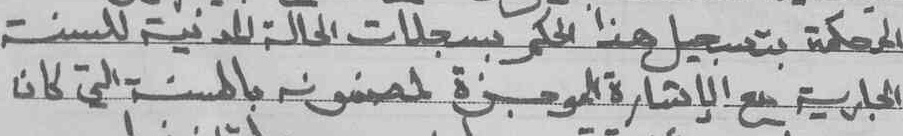 المحكمة بتسجيل هذا الحكم بسجلات الحالة المدنية للسنة
الجارية مع الإشارة الموجزة لمضمونه بالسنة التي كان